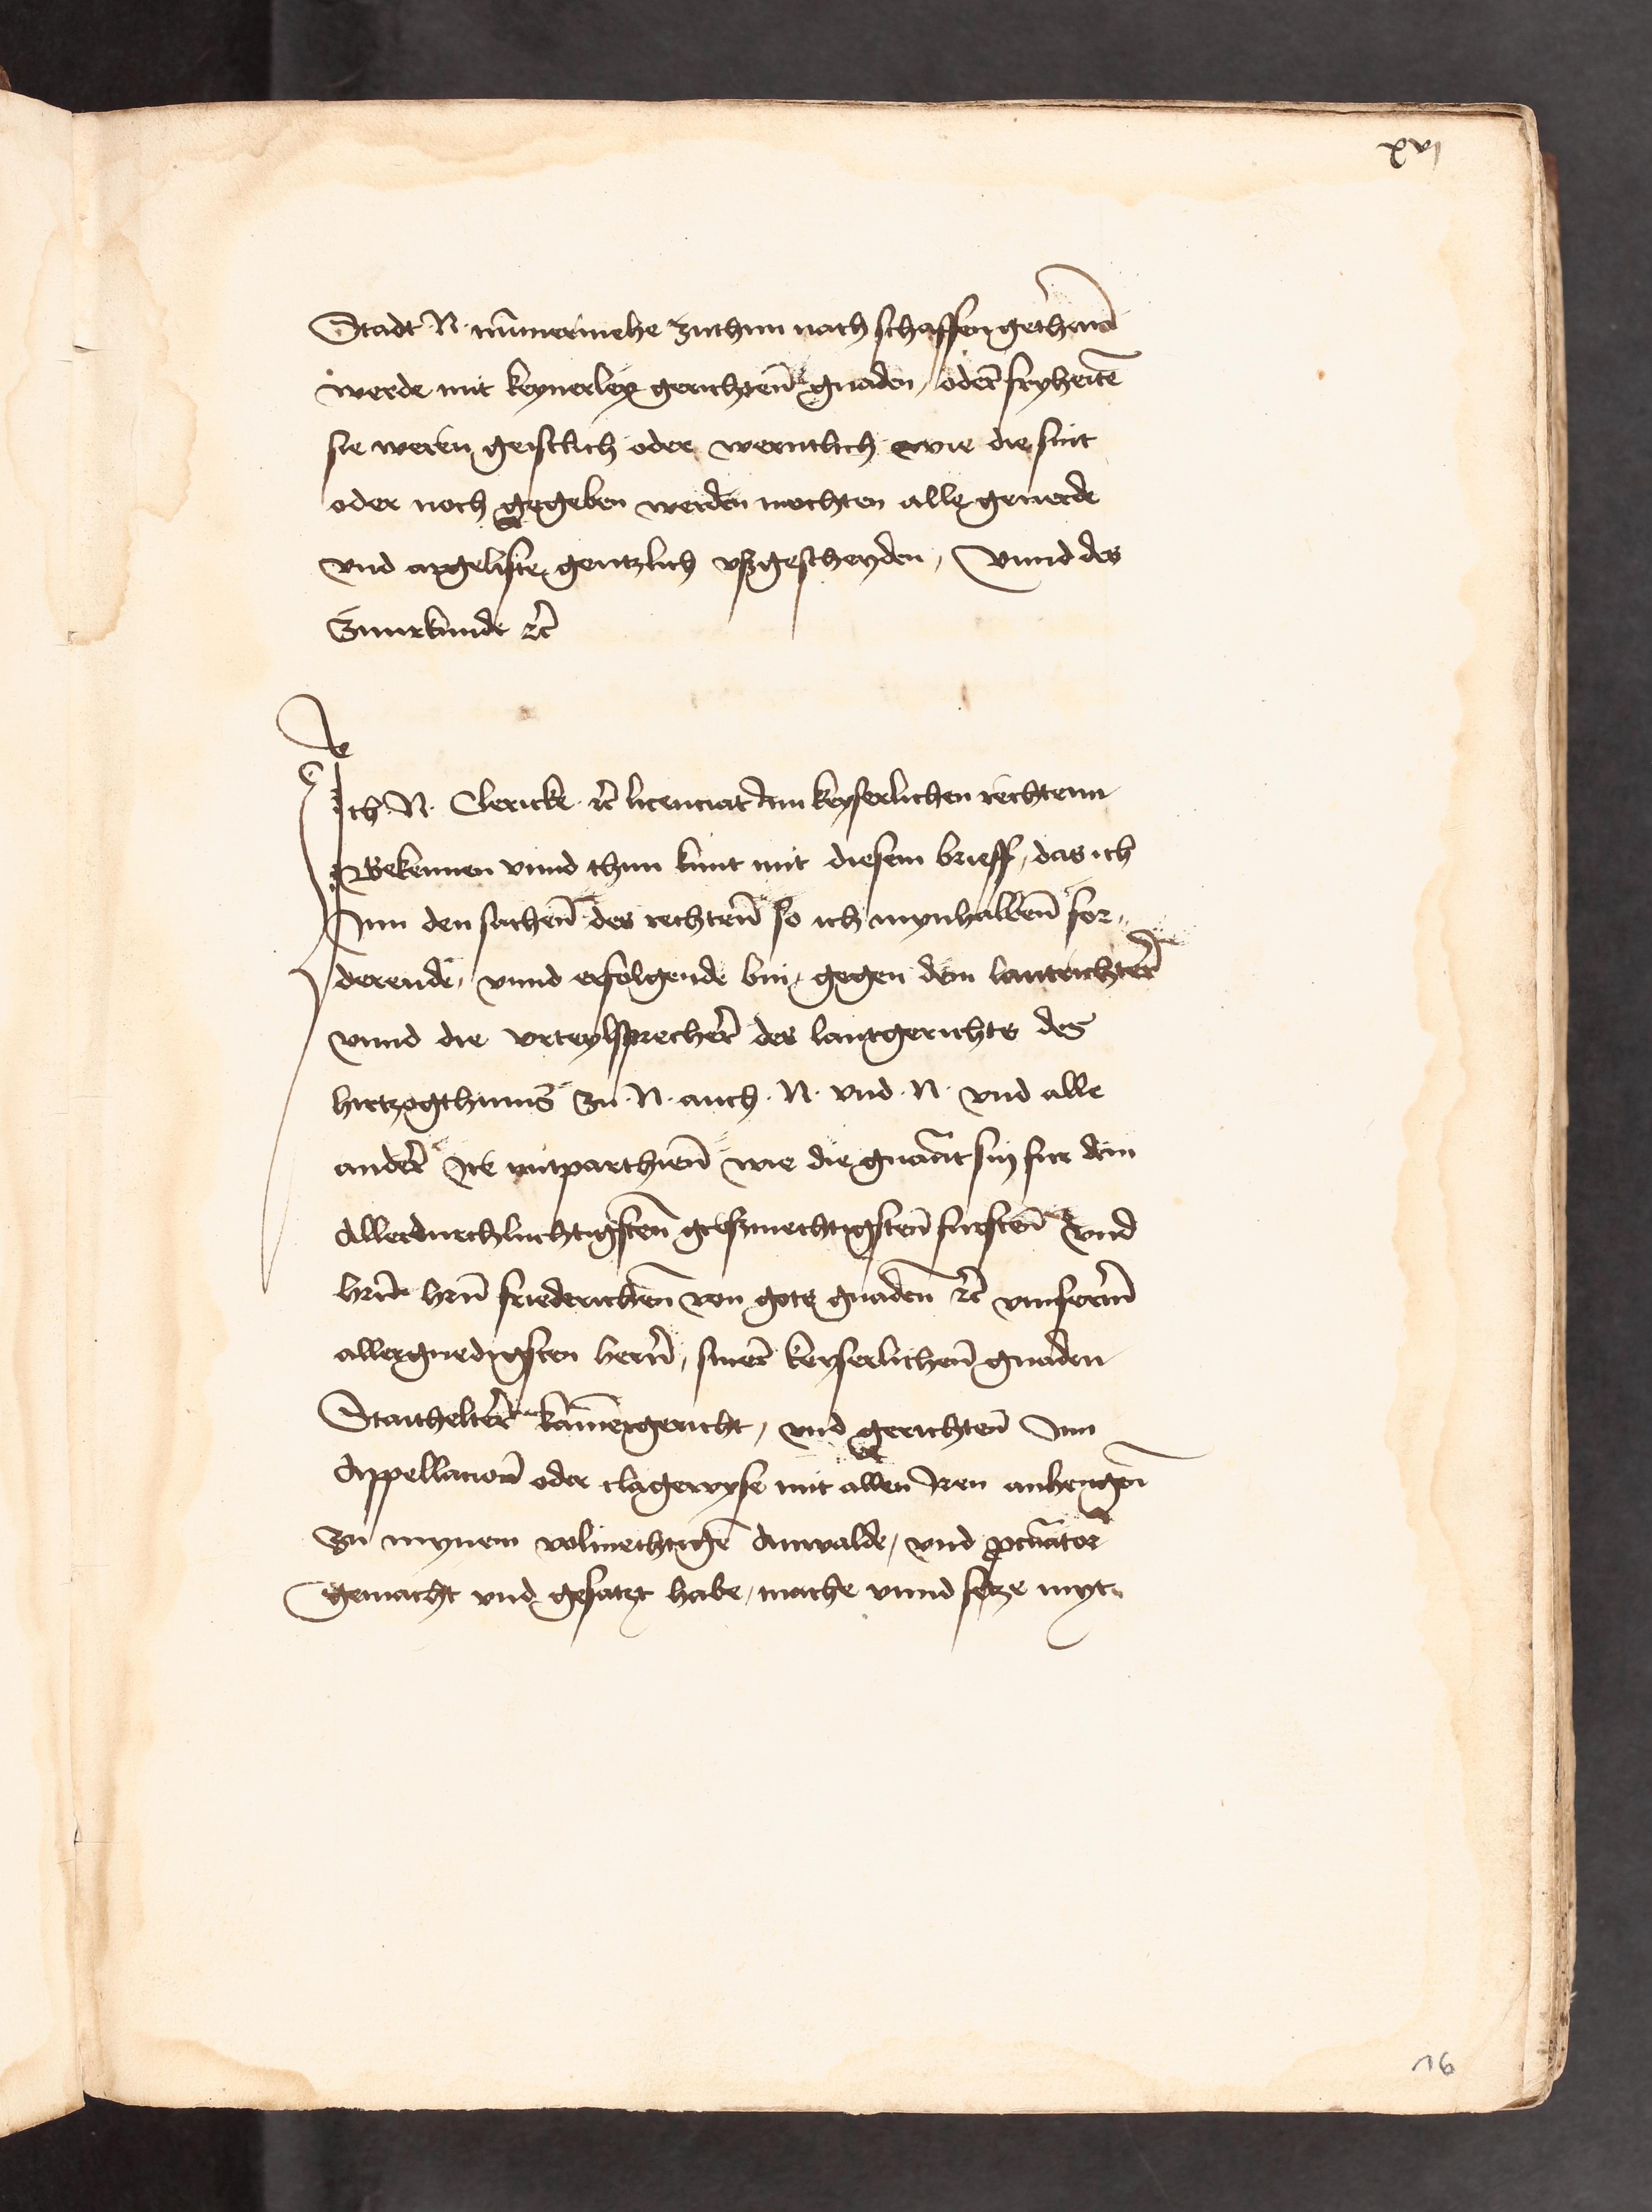 xvi
Stadt N. nūmermehe zuthun noch schaffen gethann̄
werde mit keynerley gerichtenn̄ gnaden / oder̄ fryheitē
sie weren geistlich oder werntlich wie die sint
oder noch gegeben werden mochten alle geuerde
vnd argeliste gentzlich vßgescheyden / Vnnd des
Zuurkunde ꝛc̄
Ich N. Clericke ꝛc̄ licenciat Inn keyserlichen rechtenn
Bekennen vnnd thun kunt mit diesem brieff / das ich
Inn den sachenn̄ des rechtenn̄ so ich mynhalbenn̄ for„
derende / vnnd erfolgende bin / gegen dem lantrichter̄
vnnd die vrteylsprecher̄ des lantgerichts des
hertzogthums zu N. auch N. vnd N. vnd alle
ander̄ Ire mitparthienn̄ wie die gnāt sin fur dem
Allerdurchluchtigstenn̄ großmechtigstenn̄ furstenn̄ vnd
hrn̄ hrn̄ friederichenn̄ von gots gnadenn̄ ꝛc̄ vnnserm̄
allergnedigsten hern̄ / siner̄ keyserlichenn̄ gnaden
Staithelter̄ kāmergericht / vnd gerichtenn̄ Inn
Appellacionn̄ oder clagewyse mit allen Iren anhengen̄
zu mynem volmechtigē Anwalde / vnd ꝓcūator̄
gemacht vnd gesatzt habe / mache vnnd setze myt
16